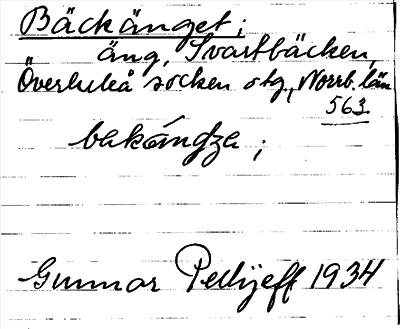 Bäckänget;
äng, Svartbäcken,
Överluleå socken otg., Norrb. län
563.
bakándza;
Gunnar Pellijeff 1934